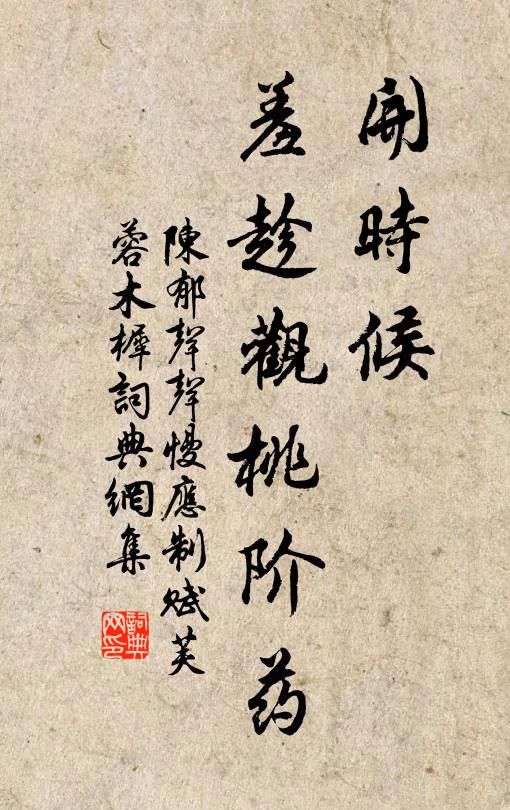 開時候
羞趁觀桃阶药
陳郁聲聲慢應制賦芙
蓉木樨詞典網集
詞典
网印